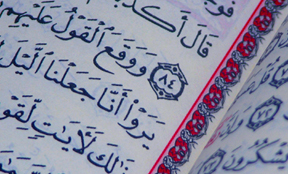 قَالَ أَكَذَّ
۝٨٤ وَوَقَعَ الْقَوْلُ عَلَيْهِم
يَرَوْا أَنَّا جَعَلْنَا الَّيْلَ
ذَٰلِكَ لَآيَٰتٍ لِّقَوْ
يَشْكُرُونَ